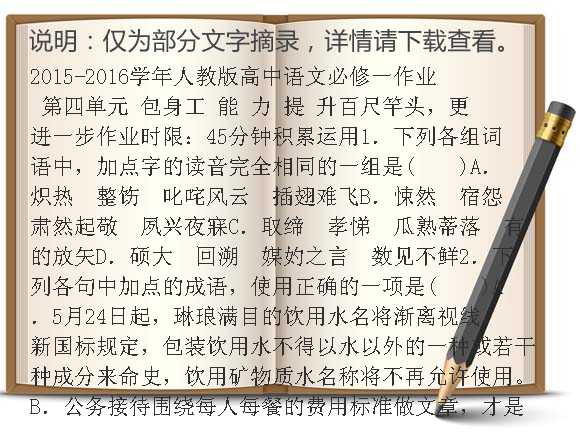 说明：仅为部分文字摘录，详情请下载查看。
2015-2016学年人教版高中语文必修一作业
第四单元 包身工 能 力 提 升百尺竿头，更
进一步作业时限：45分钟积累运用1．下列各组词
语中，加点字的读音完全相同的一组是(　　)A．
炽热　整饬　叱咤风云　插翅难飞B．悚然　宿怨
肃然起敬　夙兴夜寐C．取缔　孝悌　瓜熟蒂落　有
的放矢D．硕大　回溯　媒妁之言　数见不鲜2．下
列各句中加点的成语，使用正确的一项是(　　)
．5月24日起，琳琅满目的饮用水名将渐离视线
新国标规定，包装饮用水不得以水以外的一种或若干
种成分来命史，饮用矿物质水名称将不再允许使用。
B．公务接待围绕每人每餐的费用标准做文章，才是